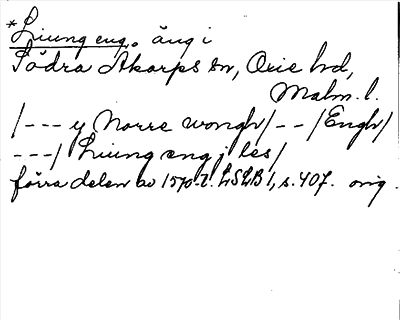 *Liung eng. äng i
Södra Åkarps sn, Oxie hd,
Malm. l.
/--- y Norre wongh/--/Engh/
---/ Liung eng j les/
förra delen av 1570-t. LSLB 1, s. 407. orig.